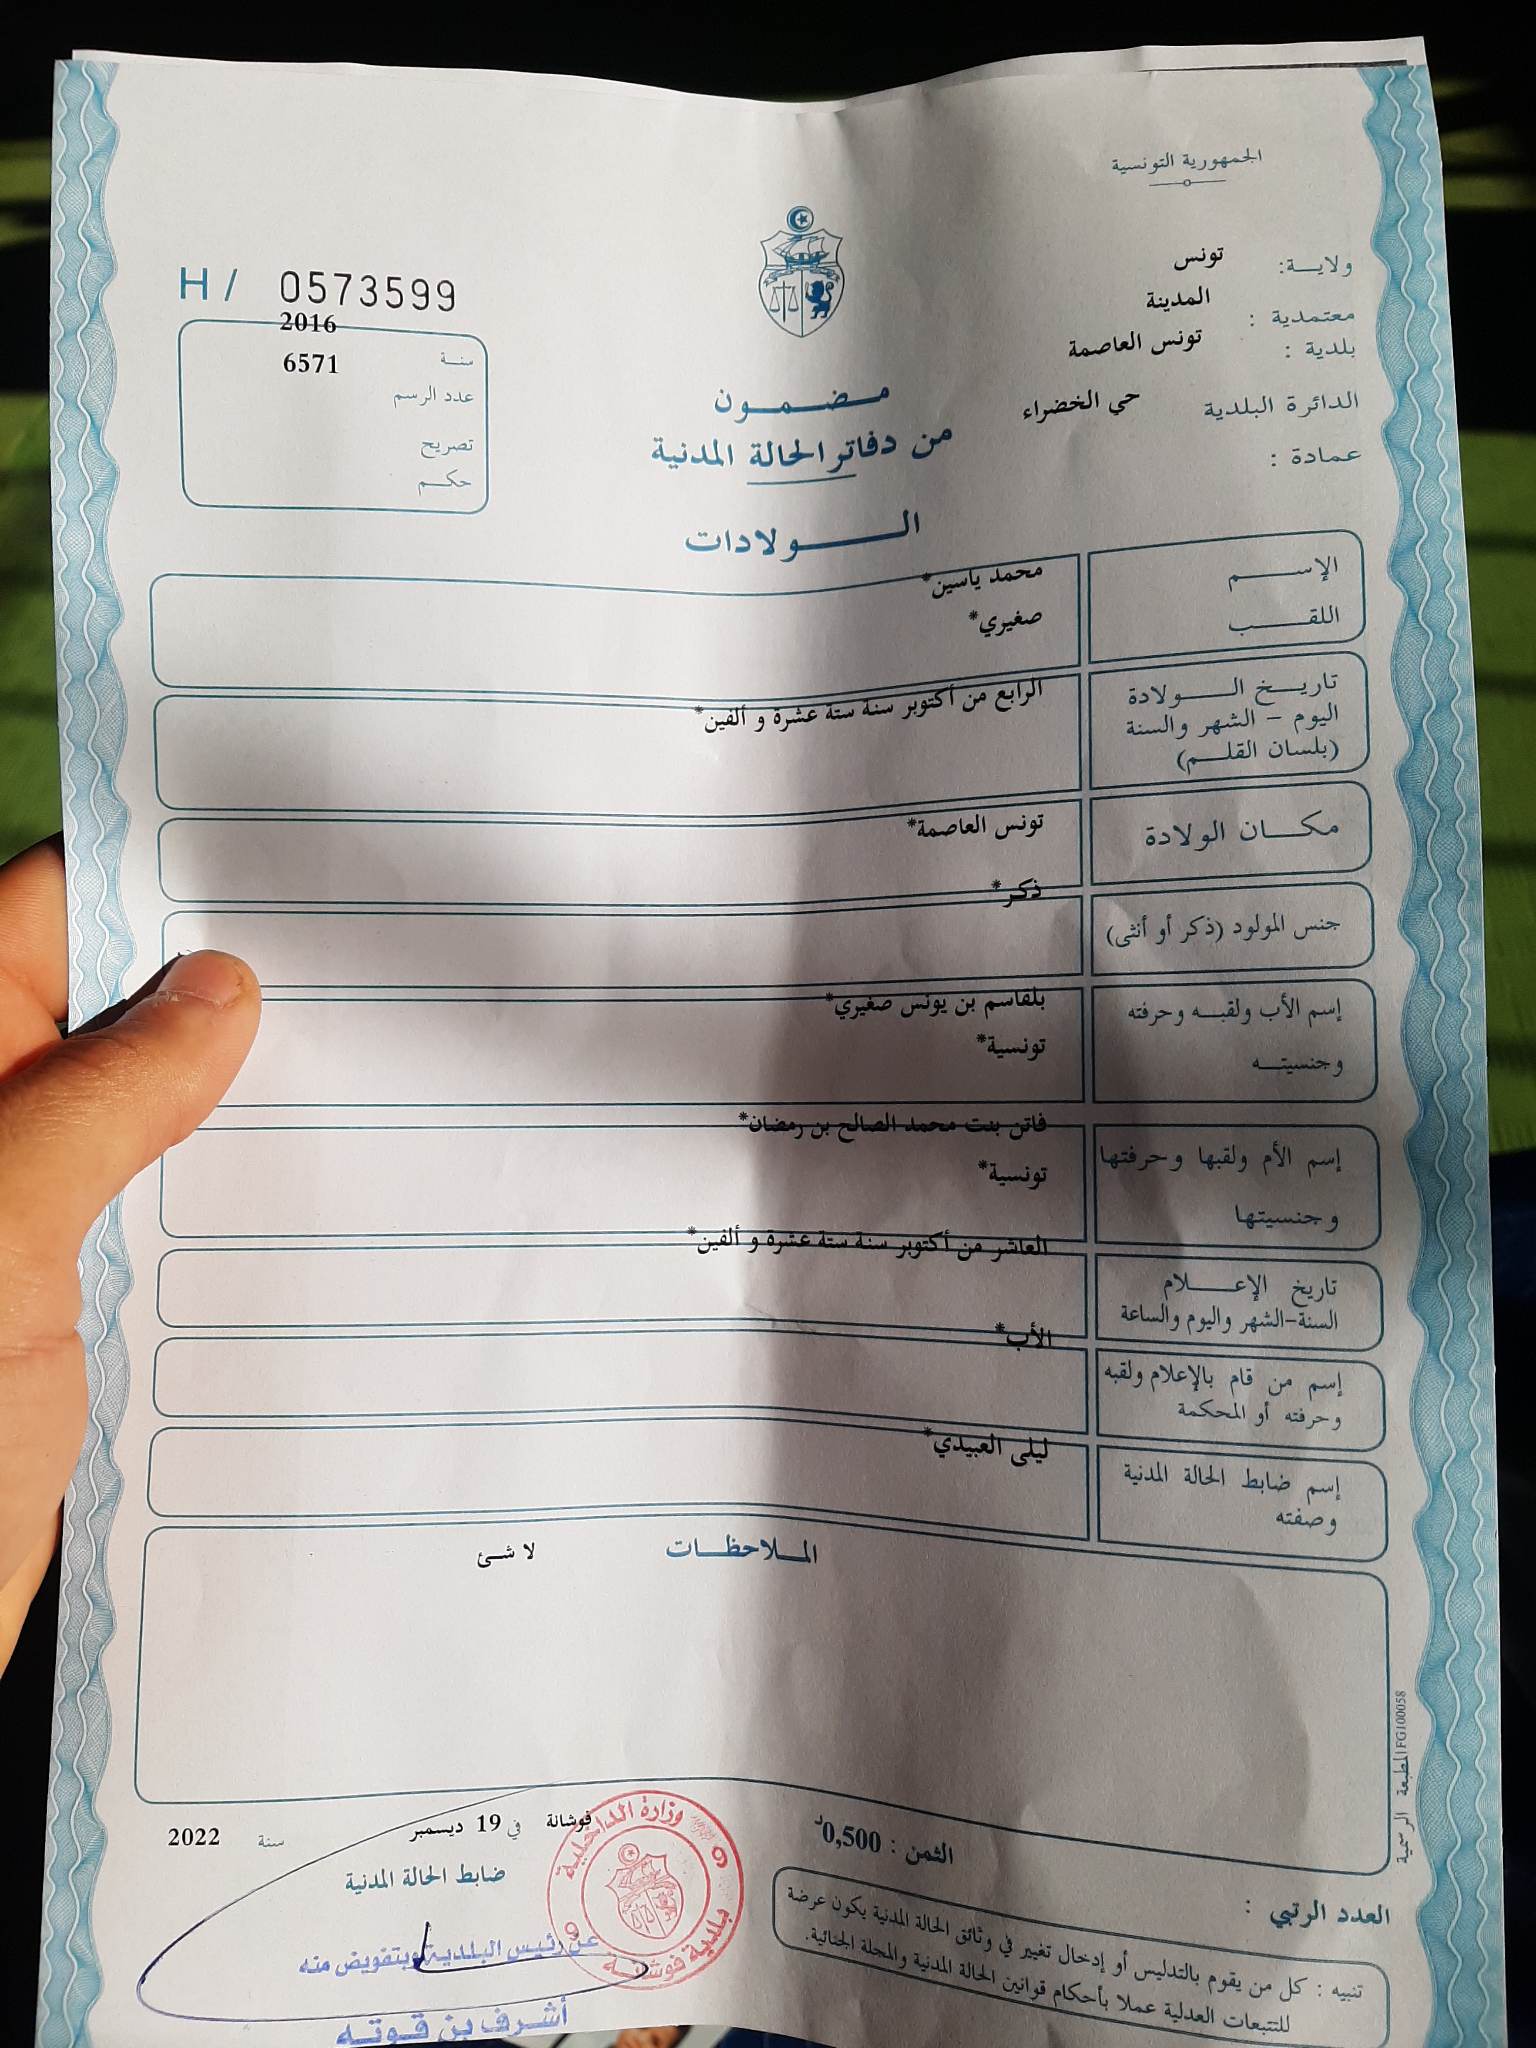 الجمهورية التونسية
ولايـــة: تونس
معتمدية : المدينة
بلدية : تونس العاصمة
الدائرة البلدية حي الخضراء
عمادة :
H / 0573599
2016
سنــة
6571
عدد الرسم
تصريح
حكــم
مـضـمـون
من دفاتر الحالة المدنية
الـــولادات
الإســـم محمد ياسين*
اللقـــب صغيري*
تاريـــخ الـــولادة
اليوم - الشهر والسنة
(بلسان القلـــم)
الرابع من أكتوبر سنة ستة عشرة و ألفين*
مكـــان الولادة تونس العاصمة*
جنس المولود (ذكر أو أنثى) ذكر*
إسم الأب ولقبـــه وحرفته
وجنسيتـــه
بلقاسم بن يونس صغيري*
تونسية*
إسم الأم ولقبها وحرفتها
وجنسيتها
فاتن بنت محمد الصالح بن رمضان*
تونسية*
تاريخ الإعـــلام
السنة-الشهر واليوم والساعة
العاشر من أكتوبر سنة ستة عشرة و ألفين*
إسم من قام بالإعلام ولقبه
وحرفته أو المحكمة
الأب*
إسم ضابط الحالة المدنية
وصفته
ليلى العبيدي*
المـلاحظـــات لا شئ
المطبعة الرسمية FG100058
فوشانة في 19 ديسمبر سنة 2022
ضابط الحالة المدنية
عن رئيس البلدية وبتفويض منه
أشرف بن قوته
وزارة الداخلية
بلدية فوشانة
9
9
الثمن : 0,500د
العدد الرتبي :
تنبيه : كل من يقوم بالتدليس أو إدخال تغيير في وثائق الحالة المدنية يكون عرضة
للتتبعات العدلية عملا بأحكام قوانين الحالة المدنية والمجلة الجنائية.